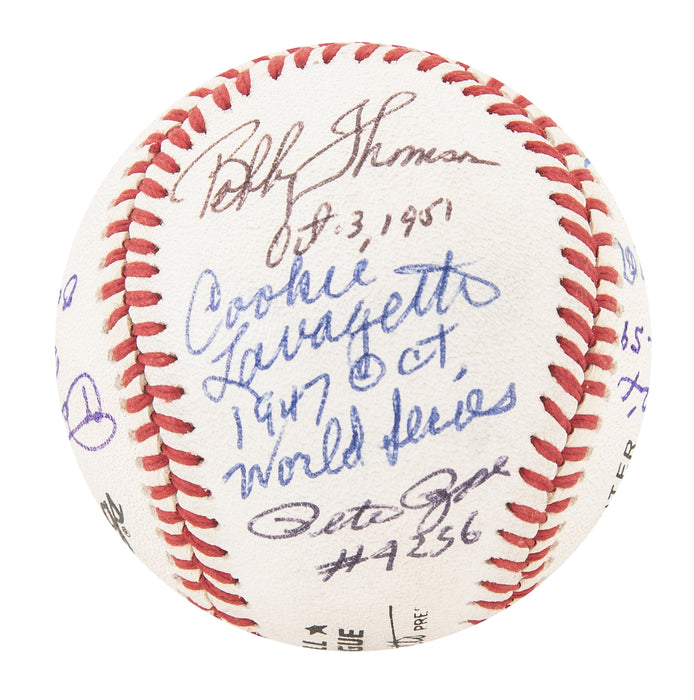 Bobby Thomson
Oct. 3, 1951
Cookie
Lavagetto
1947 Oct,
World Series
Pete Rose
#4256
65-
PRE
GUE